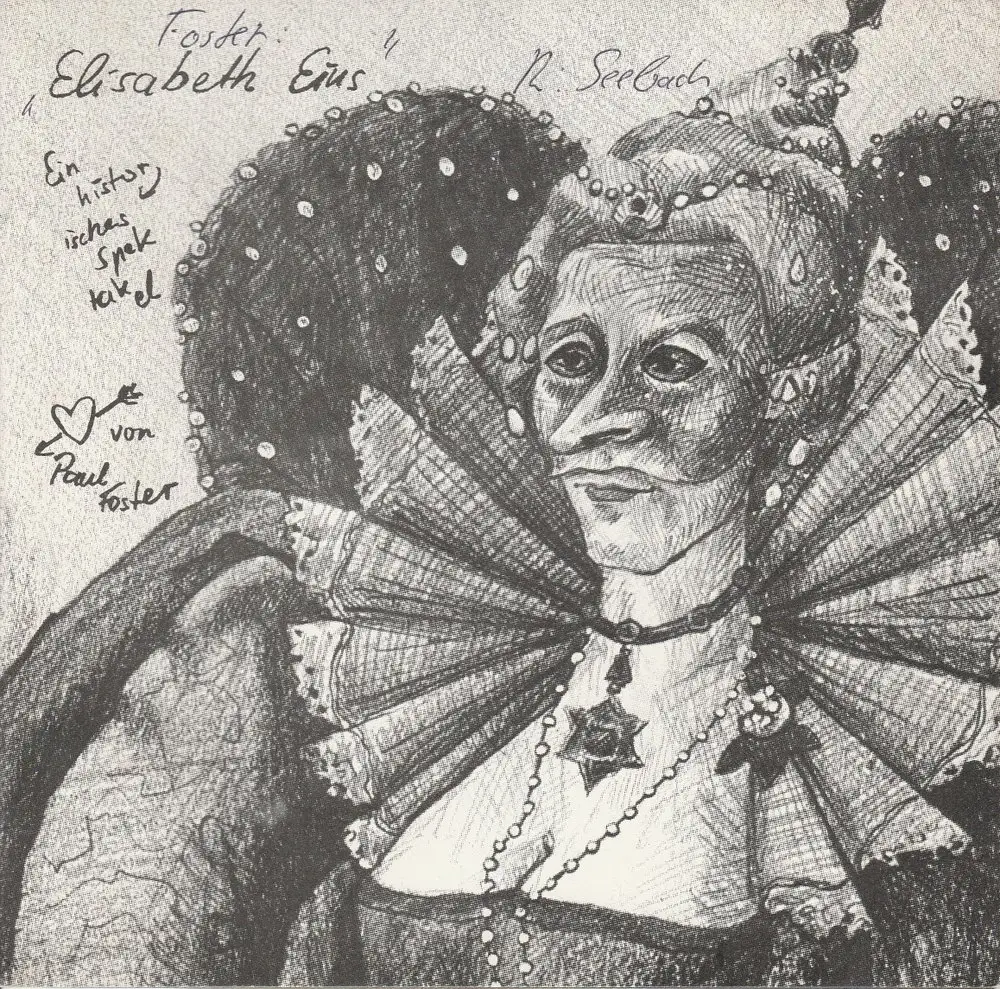 Foster:
"Elisabeth Eins"
R: Seebach
Ein
histor
isches
Spek
takel
von
Paul
Foster